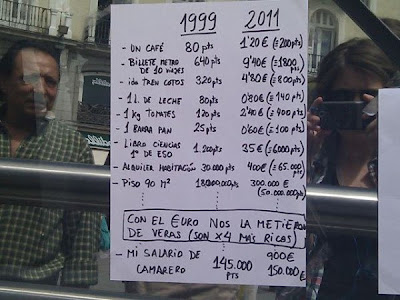 1999 2011
- UN CAFÉ 80 pts 1'20 € (=200pts)
- BILLETE METRO DE 10 VIAJES 640 pts 9'40 € (=1800 pts)
- ida TREN COTOS 320 pts 4'80 € (=800 pts)
- 1 L. DE LECHE 80 pts 0'80 € (=140 pts)
- 1 Kg TOMATES 120 pts 2'40 € (=400 pts)
- 1 BARRA PAN 25 pts 0'60 € (=100 pts)
- LIBRO CIENCIAS 1º DE ESO 1.200 pts 35 € (=6000 pts)
- ALQUILER HABITACIÓN 30.000 pts 400 € (=65.000 pts)
- PISO 90 M² 300.000 € (50.000.000 pts)
CON EL €URO NOS LA METIERON
DE VERAS (SON x4 MÁS RICOS)
- MI SALARIO DE CAMARERO 145.000 PTS 900 € 150.000 €